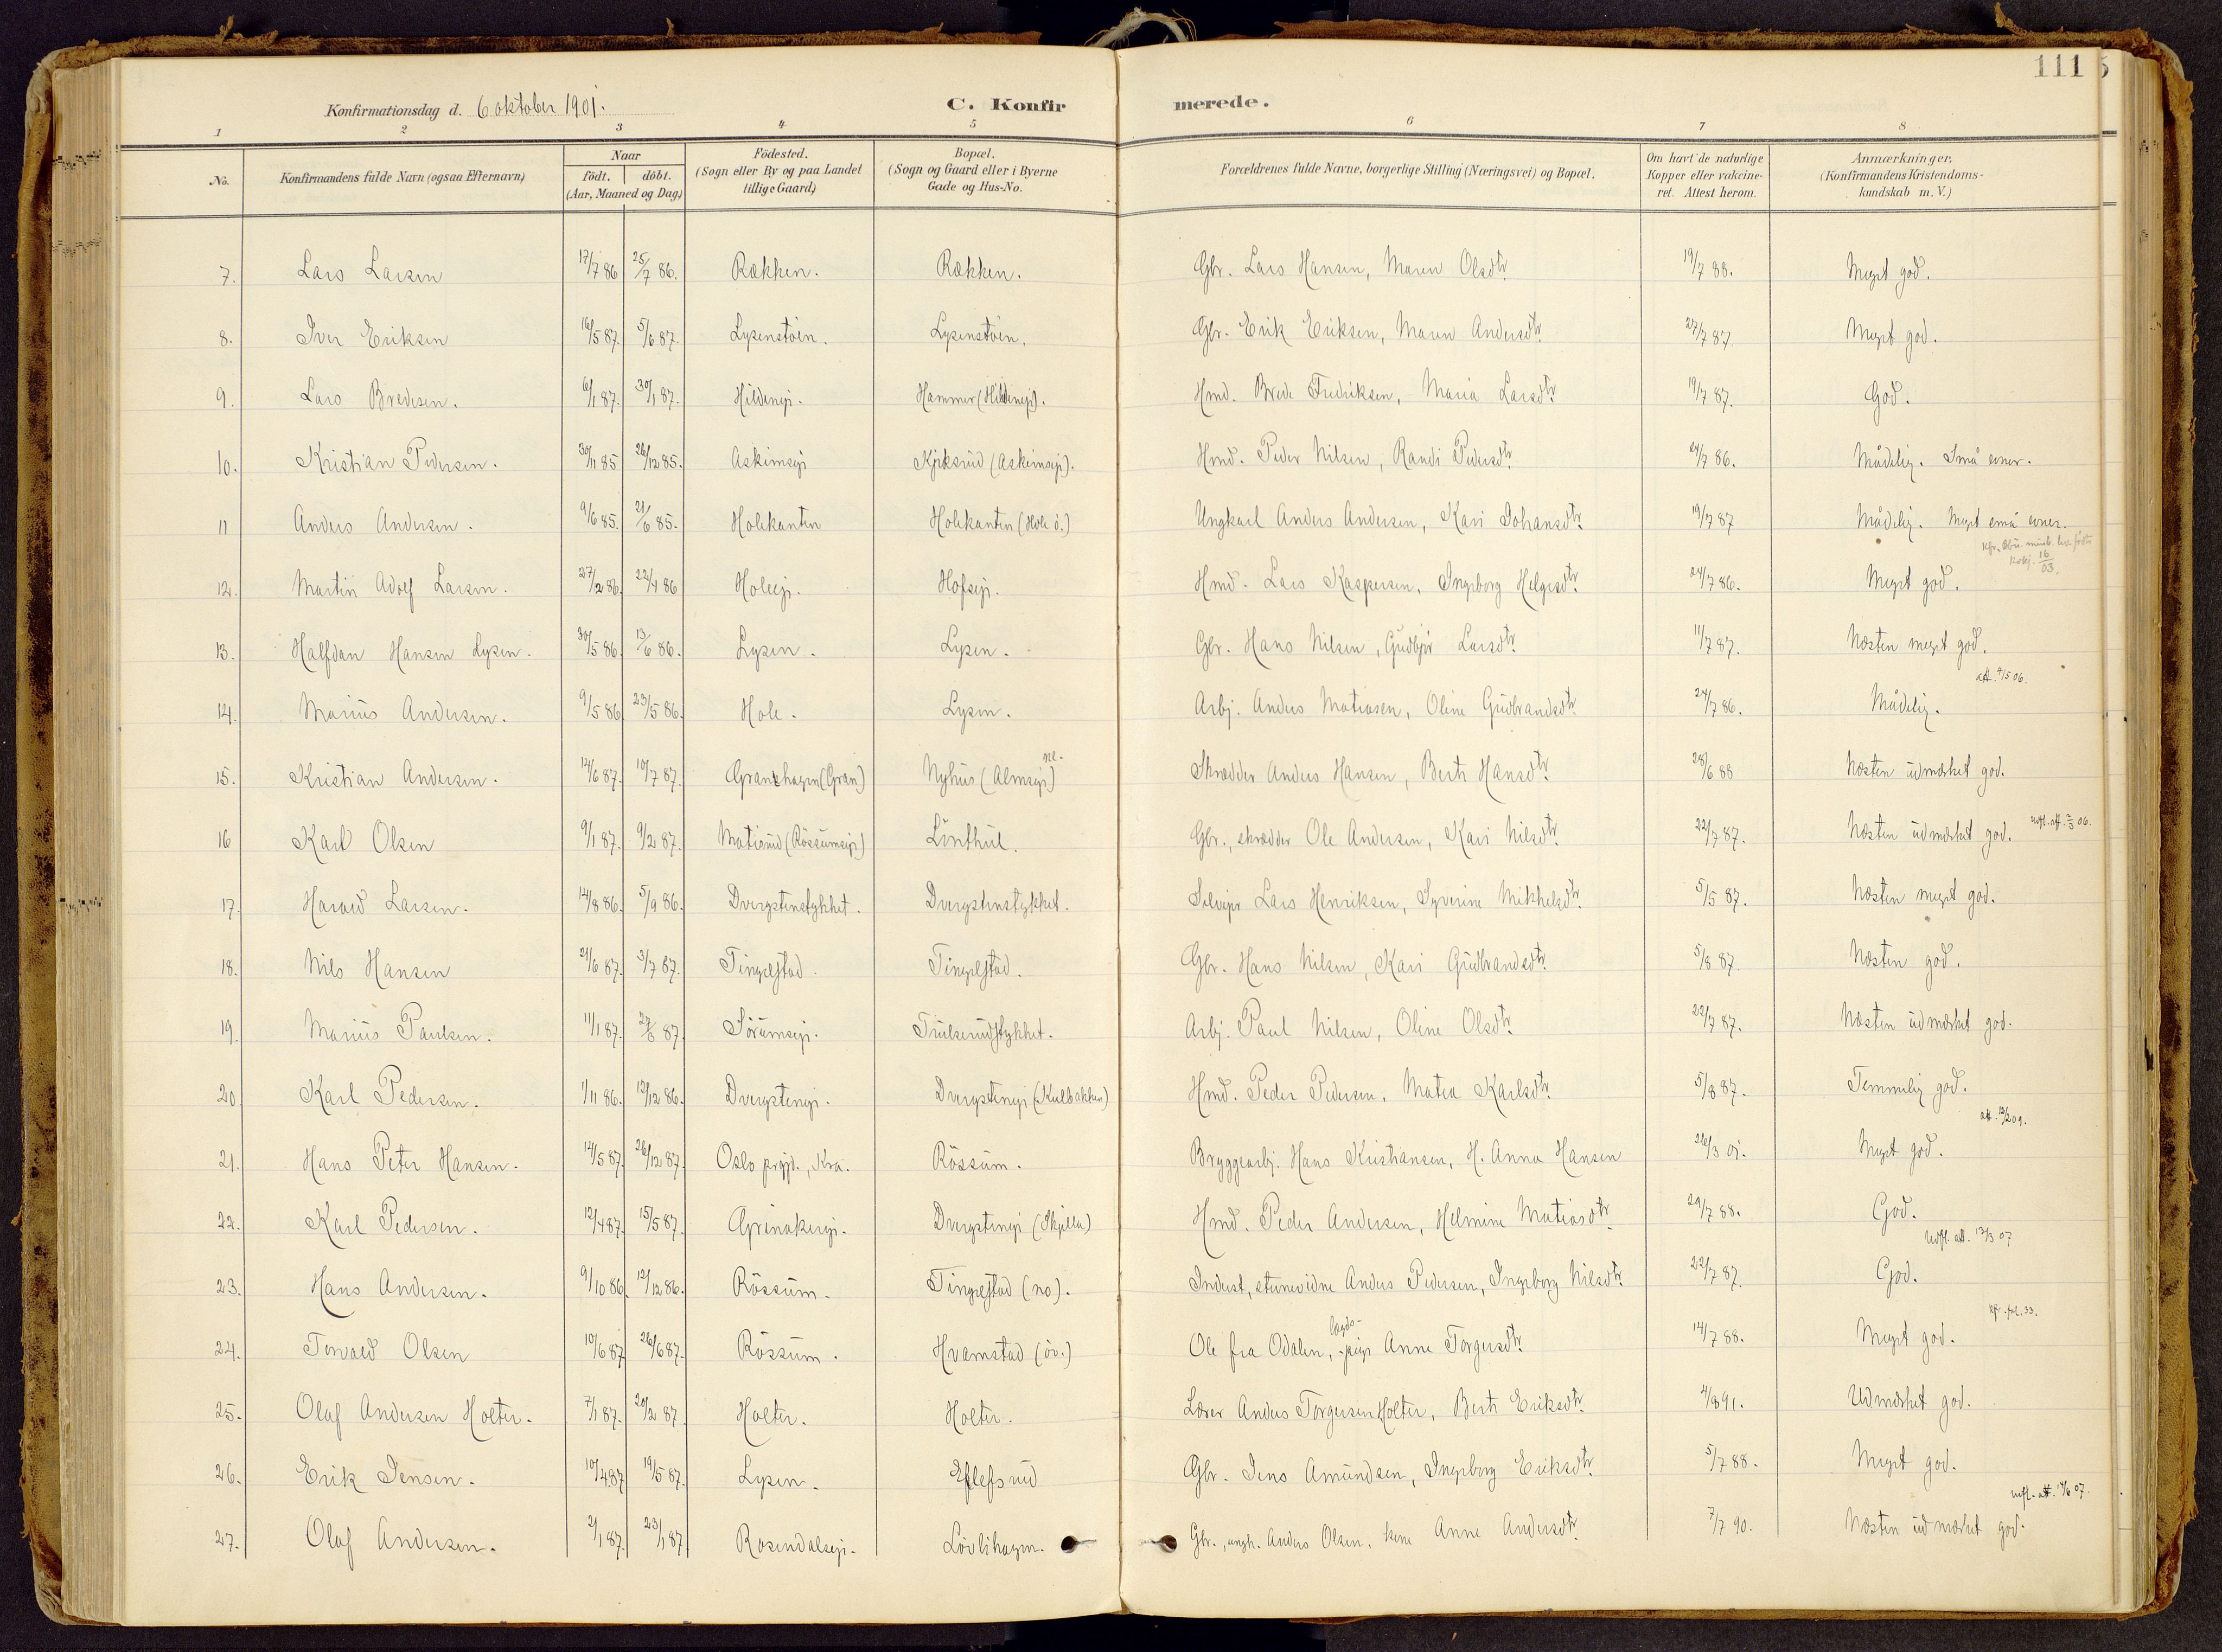 111
Konfirmationsdag d. 6 oktober 1901.
C. Konfirmerede.
1 2 3 4 5 6 7 8
No.
Konfirmandens fulde Navn (ogsaa Efternavn)
Naar födt. döbt. (Aar, Maaned og Dag.)
Födested. (Sogn eller By og paa Landet tillige Gaard)
Bopæl. (Sogn og Gaard eller i Byerne Gade og Hus-No.
Forældrenes fulde Navne, borgerlige Stilling (Næringsvei) og Bopæl.
Om havt de naturlige Kopper eller vakcineret. Attest herom.
Anmærkninger, (Konfirmandens Kristendomskundskab m. V.)
7. Lars Larsen 17/7 86 25/7 86. Rækken. Rækken. Gbr. Lars Hansen, Maren Olsdtr. 19/7 88. Meget god.
8. Iver Eriksen 16/5 87. 5/6 87. Lysenstöen. Lysenstöen. Gbr. Erik Eriksen, Maren Andersdtr. 27/7 87. Meget god.
9. Lars Bredesen. 6/1 87. 30/1 87. Hildenej. Hammer (Hildenej). Hmd. Brede Fredriksen, Maria Larsdtr. 19/7 87. God.
10. Kristian Pedersen. 30/11 85 26/12 85. Askimsej Kjiksrud (Askimsej). Hmd. Peder Nilsen, Randi Pedersdtr. 24/7 86. Mådelig. Små evner.
11 Anders Andersen. 9/6 85. 21/6 85. Holekanten Holekanten (Hole ö.) Ungkarl Anders Andersen, Kari Johansdtr. 19/7 87 Mådelig. Meget små evner.
12. Martin Adolf Larsen. 27/2 86. 22/4 86 Holeej. Hofsej. Hmd. Lars Kaspersen, Ingeborg Helgesdtr. 24/7 86. Meget god. 16/03.
13. Halfdan Hansen Lysen. 30/5 86. 13/6 86. Lysen. Lysen. Gbr. Hans Nilsen, Gudbjör Larsdtr. 11/7 87. Næsten meget god.
14. Marius Andersen. 9/5 86 23/5 86. Hole. Lysen. Arbj. Anders Matiasen, Oline Gudbrandsdtr. 24/7 86. Mådelig. att. 4/5 06.
15. Kristian Andersen. 12/6 87. 10/7 87. Granshagen (Gran) Nyhus (Almsej) Skrædder Anders Hansen, Berte Hansdtr. 28/6 88 Næsten udmærket god.
16 Karl Olsen 9/1 87. 9/2 87. Matisrud (Rössumsej) Linthul. Gbr., skrædder Ole Andersen, Kari Nilsdtr. 22/7 87. Næsten udmærket god.
17. Harald Larsen. 14/8 86. 5/9 86. Dvergstenstykket. Dvergstenstykket. Selvejer Lars Henriksen, Syverine Mikkelsdtr. 5/5 87. Næsten meget god.
18. Nils Hansen 21/6 87. 3/7 87. Tingelstad. Tingelstad. Gbr. Hans Nilsen, Kari Gudbrandsdtr. 5/8 87. Næsten god.
19. Marius Paulsen. 11/1 87. 87. Sörumsej. Trulserudstykket. Arbj. Paul Nilsen, Oline Olsdtr. 22/7 87. Næsten udmærket god.
20 Karl Pedersen. 1/11 86. 12/12 86. Dvergstenej. Dvergstenej (Kulbakken) Hmd. Peder Pedersen, Matea Karlsdtr. 5/8 87. Temmelig god.
21. Hans Peter Hansen. 14/5 87. 26/12 87. Oslo prgjd., Kra. Rössum. Bryggearbj. Hans Kristiansen, H. Anna Hansen 26/3 01. Meget god.
22. Karl Pedersen. 12/4 87. 15/5 87. Grinakerej. Dvergstenej (Skjella) Hmd. Peder Andersen, Helmine Matiasdtr. 29/7 88. God.
23. Hans Andersen. 9/10 86. 12/12 86. Rössum. Tingelstad (no). Indust, stenevidne Anders Pedersen, Ingeborg Nilsdtr. 22/7 87. God. Udfl. att. 12/3 07
24. Torvald Olsen 10/6 87 26/6 87. Rössum. Hvamstad (öv.) Ole fra Odalen, lægds-pige Anne Torgersdtr. 14/7 88. Meget god. kfr. fol. 33.
25. Olaf Andersen Holter. 7/1 87. 20/2 87. Holter. Holter. Lærer Anders Torgersen Holter, Berte Eriksdtr. 4/8 91. Udmærket god.
26. Erik Jensen. 10/4 87 19/5 87. Lysen. Eglefsrud Gbr. Jens Amundsen, Ingeborg Eriksdtr. 5/7 88. Meget god.
27. Olaf Andersen. 2/1 87. 23/1 87 Rosendalsej. Lövlihagen. Gbr., ungk. Anders Olsen, kone Anne Andersdtr. 7/7 90. Næsten udmærket god.